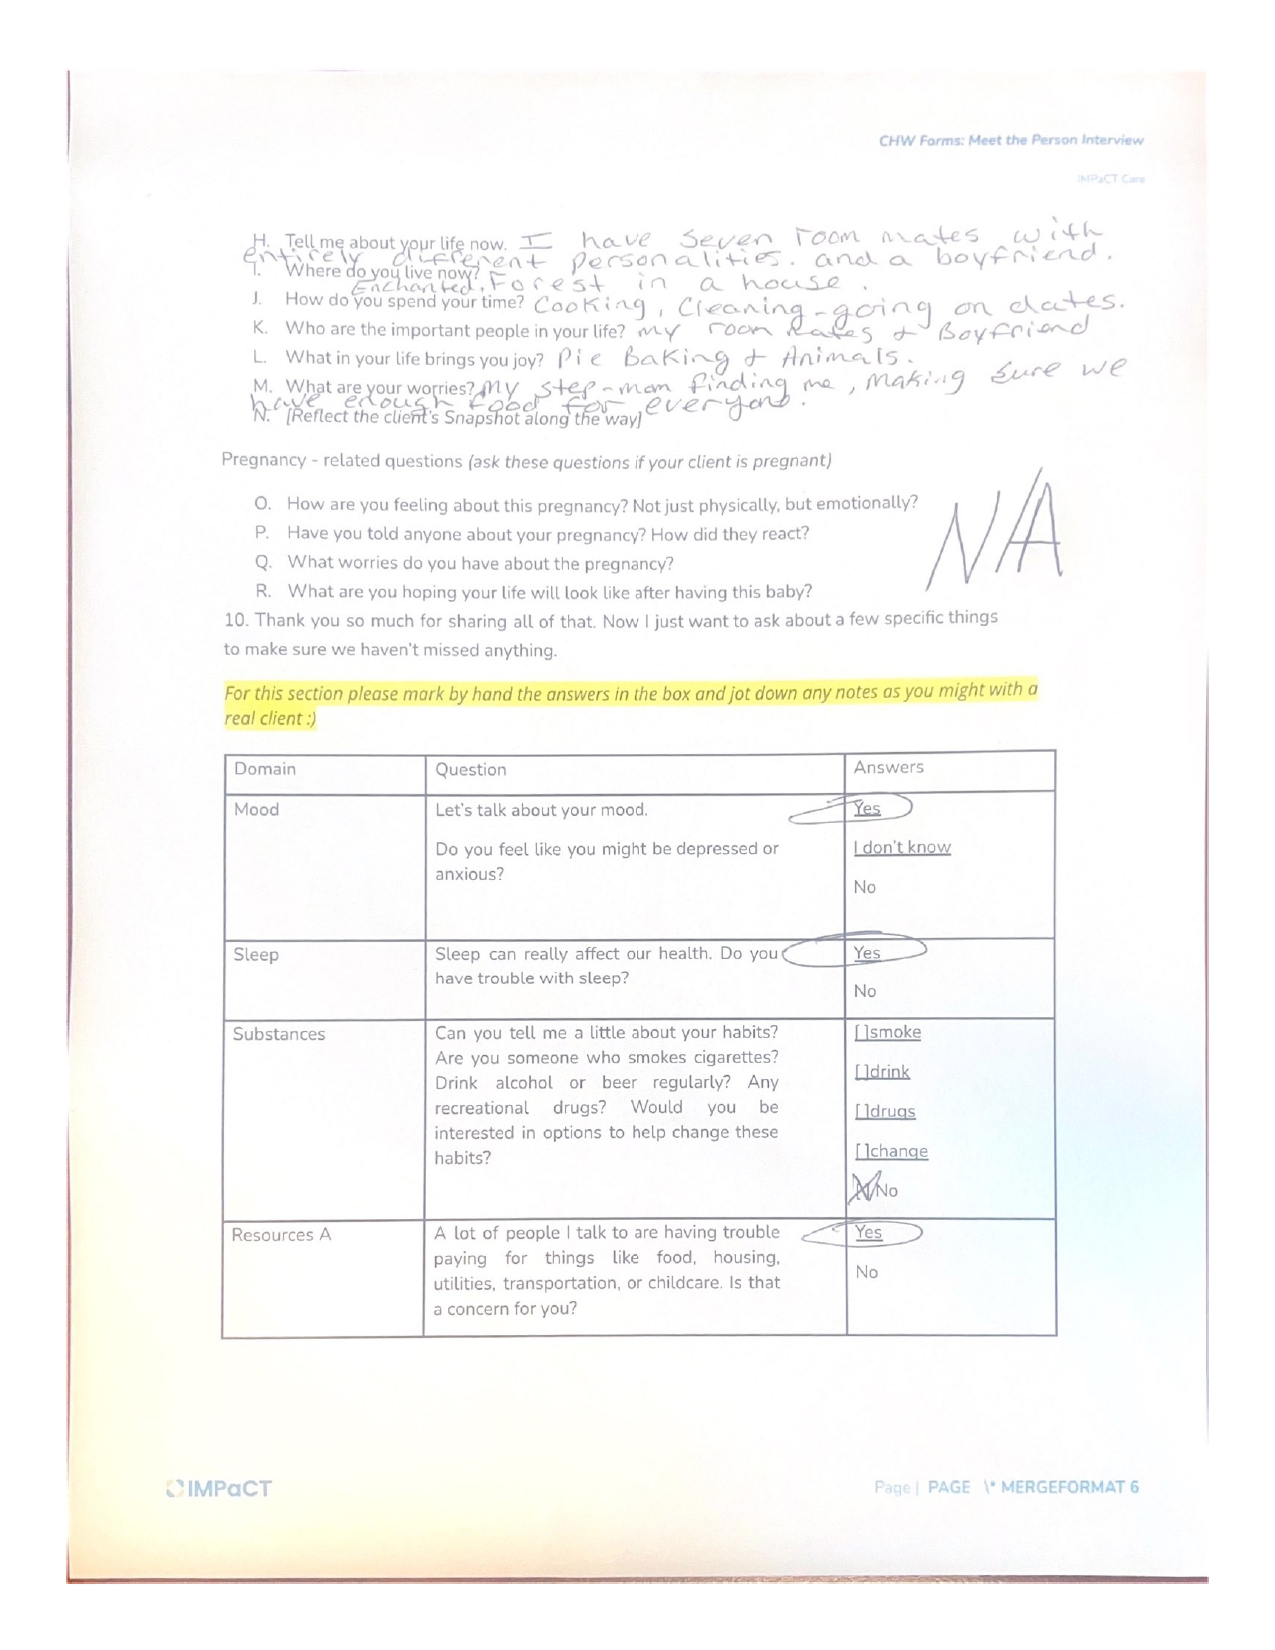 CHW Forms: Meet the Person Interview
IMPaCT Care
H. Tell me about your life now. I have seven room mates with
entirely different personalities. and a boyfriend.
I. Where do you live now?
Enchanted Forest in a house.
J. How do you spend your time? Cooking, Cleaning - going on dates.
K. Who are the important people in your life? my room mates + Boyfriend
L. What in your life brings you joy? Pie Baking + Animals.
M. What are your worries? My step-mom finding me, making sure we
have enough food for everyone.
N. [Reflect the client's Snapshot along the way]
Pregnancy - related questions (ask these questions if your client is pregnant)
N/A
O. How are you feeling about this pregnancy? Not just physically, but emotionally?
P. Have you told anyone about your pregnancy? How did they react?
Q. What worries do you have about the pregnancy?
R. What are you hoping your life will look like after having this baby?
10. Thank you so much for sharing all of that. Now I just want to ask about a few specific things
to make sure we haven't missed anything.
For this section please mark by hand the answers in the box and jot down any notes as you might with a
real client :)
Domain Question Answers
Mood Let's talk about your mood. Yes
Do you feel like you might be depressed or I don't know
anxious?
No
Sleep Sleep can really affect our health. Do you Yes
have trouble with sleep?
No
Substances Can you tell me a little about your habits? [ ]smoke
Are you someone who smokes cigarettes?
Drink alcohol or beer regularly? Any [ ]drink
recreational drugs? Would you be [ ]drugs
interested in options to help change these
habits? [ ]change
No
Resources A A lot of people I talk to are having trouble Yes
paying for things like food, housing,
utilities, transportation, or childcare. Is that No
a concern for you?
IMPaCT
Page | PAGE \* MERGEFORMAT 6